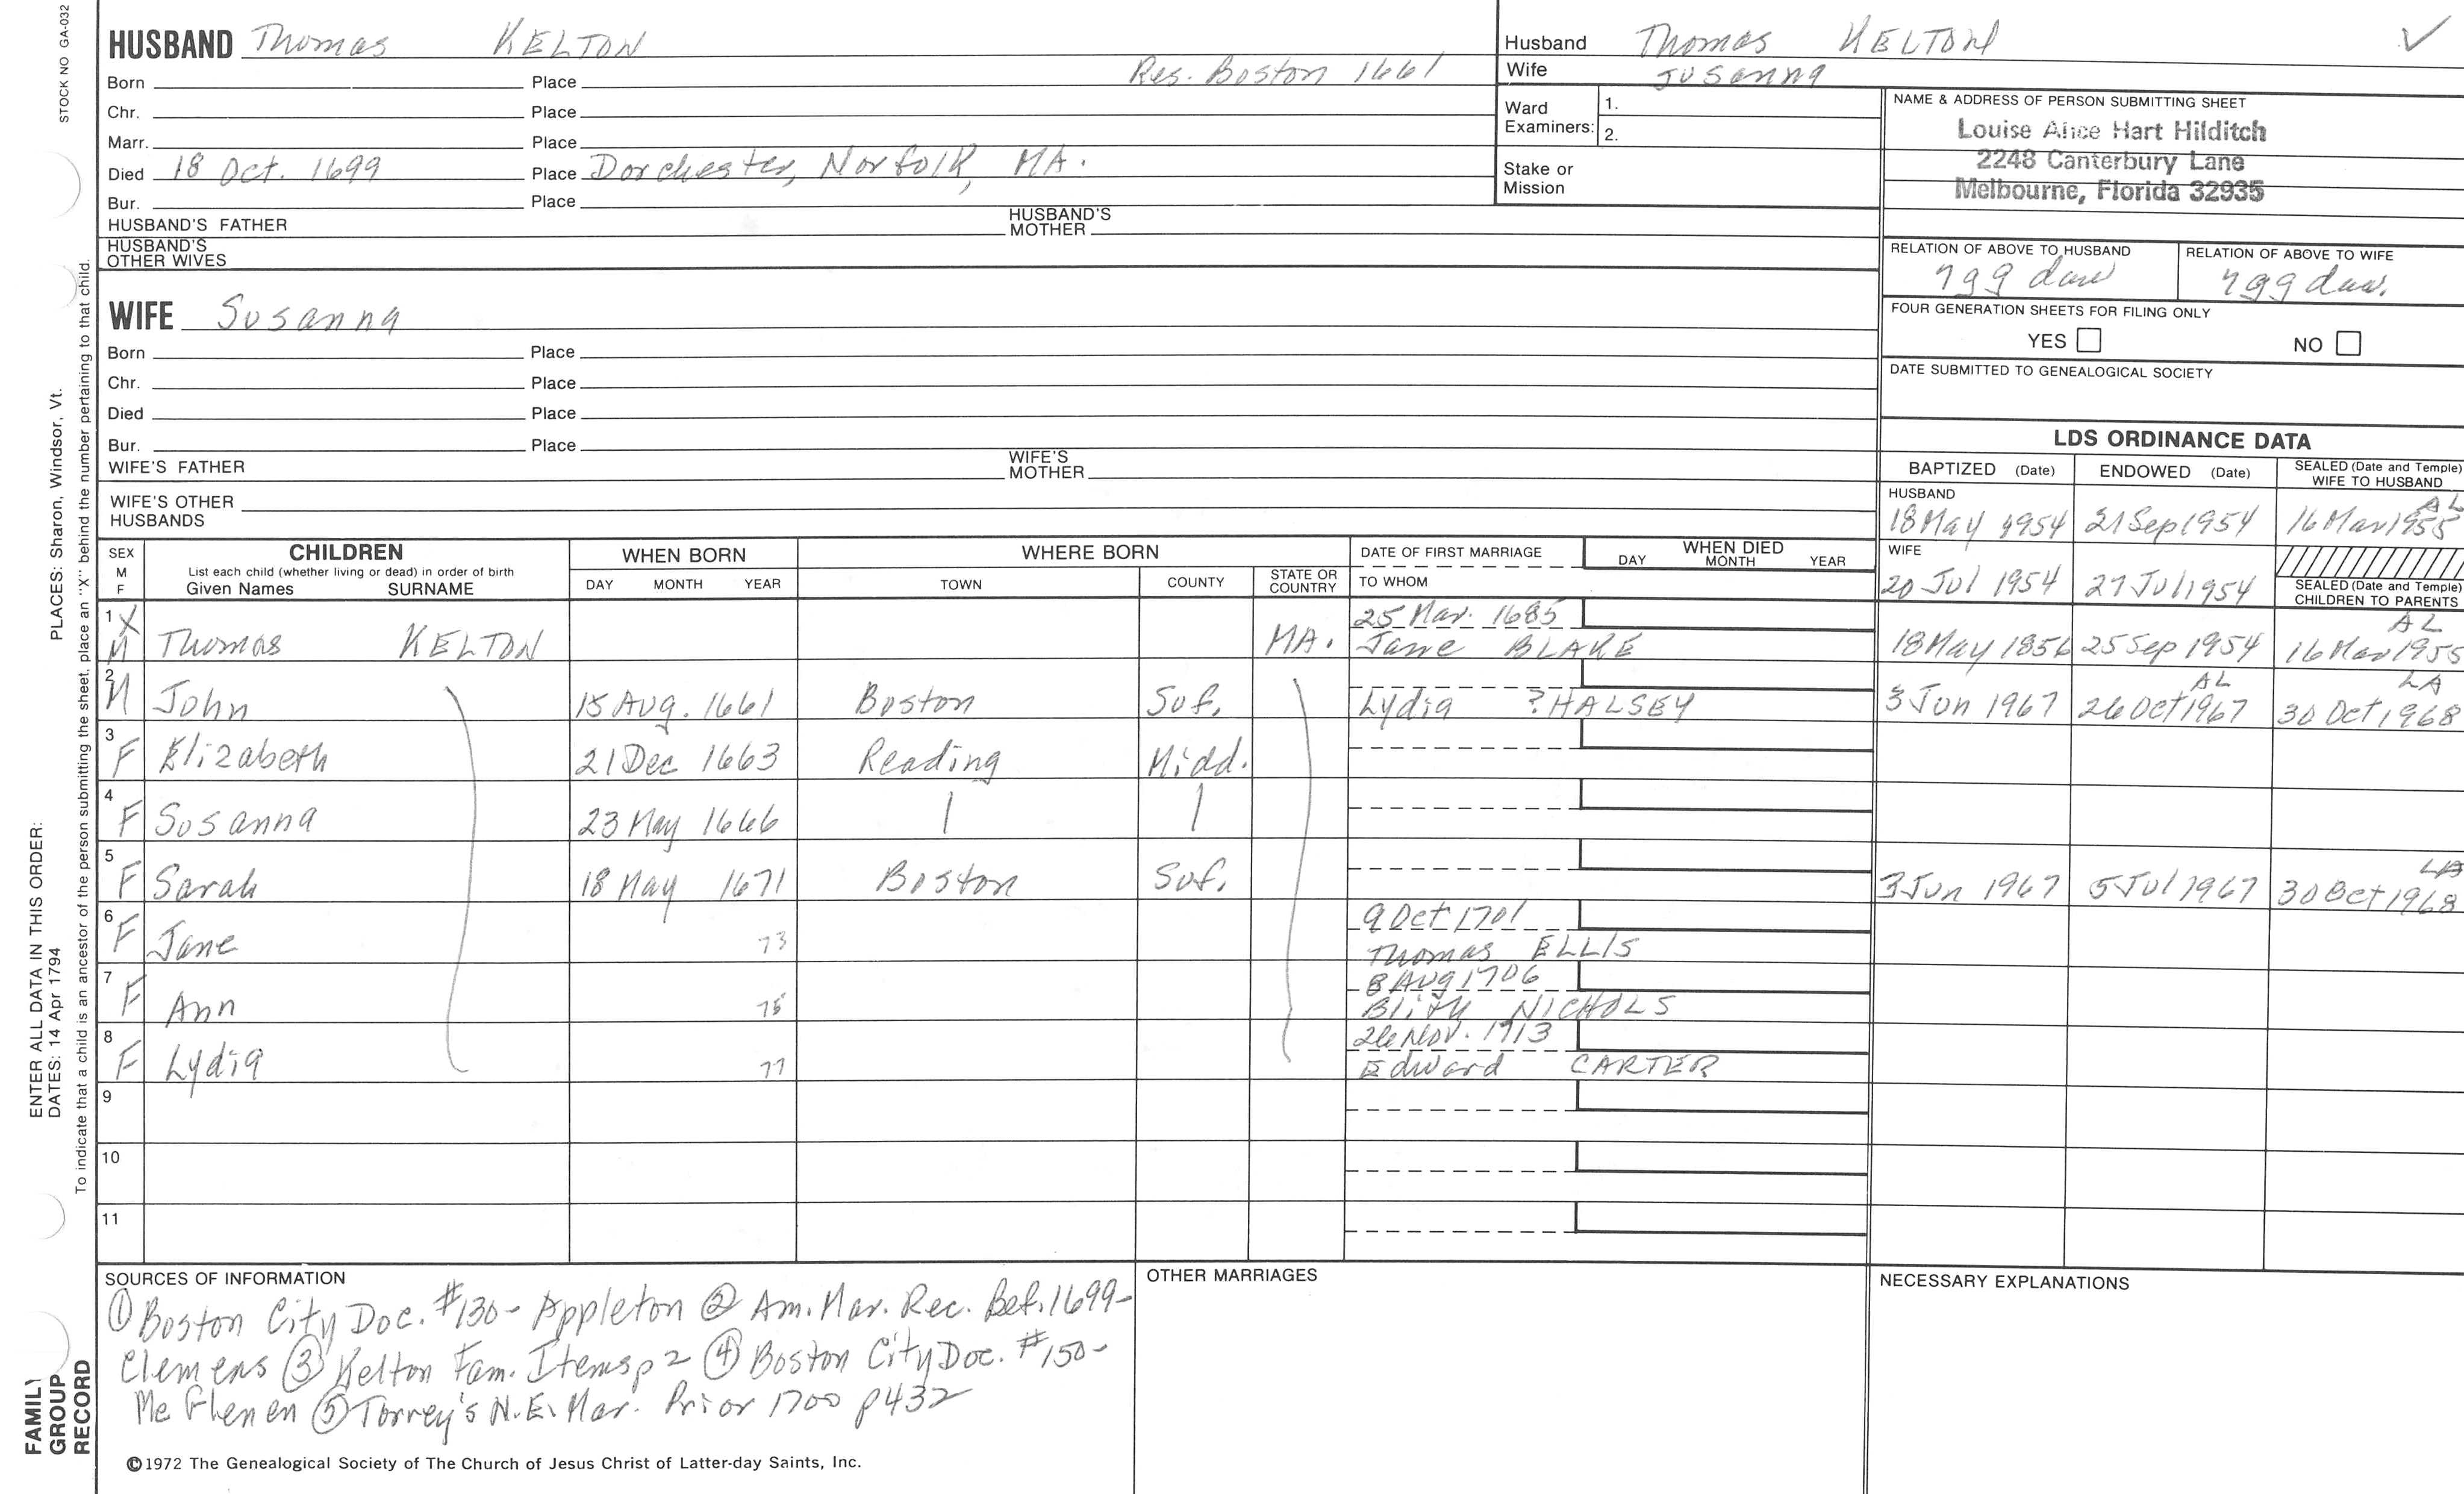 STOCK NO GA-032
HUSBAND Thomas KELTON
Res. Boston 1661
Born Place
Chr. Place
Marr. Place
Died 18 Oct. 1699 Place Dorchester, Norfolk, MA.
Bur. Place
HUSBAND'S FATHER HUSBAND'S MOTHER
HUSBAND'S OTHER WIVES
WIFE Susanna
Born Place
Chr. Place
Died Place
Bur. Place
WIFE'S FATHER WIFE'S MOTHER
WIFE'S OTHER HUSBANDS
Husband Thomas KELTON
Wife Susanna
Ward Examiners: 1.
2.
Stake or Mission
NAME & ADDRESS OF PERSON SUBMITTING SHEET
Louise Alice Hart Hilditch
2248 Canterbury Lane
Melbourne, Florida 32935
RELATION OF ABOVE TO HUSBAND RELATION OF ABOVE TO WIFE
7gg dau 7gg dau.
FOUR GENERATION SHEETS FOR FILING ONLY
YES NO
DATE SUBMITTED TO GENEALOGICAL SOCIETY
LDS ORDINANCE DATA
BAPTIZED (Date) ENDOWED (Date) SEALED (Date and Temple) WIFE TO HUSBAND
HUSBAND AL
18 May 1954 21 Sep 1954 16 Mar 1955
WIFE
20 Jul 1954 27 Jul 1954 SEALED (Date and Temple) CHILDREN TO PARENTS
SEX M F CHILDREN WHEN BORN WHERE BORN DATE OF FIRST MARRIAGE WHEN DIED
List each child (whether living or dead) in order of birth
Given Names SURNAME DAY MONTH YEAR TOWN COUNTY STATE OR COUNTRY TO WHOM DAY MONTH YEAR
1 X 25 Mar. 1685 AL
M Thomas KELTON MA. Jane BLAKE 18 May 1856 25 Sep 1954 16 Mar 1955
2 AL LA
M John 15 Aug. 1661 Boston Suf. Lydia ?HALSEY 3 Jun 1967 26 Oct 1967 30 Oct 1968
3
F Elizabeth 21 Dec 1663 Reading Midd.
4
F Susanna 23 May 1666
5 LA
F Sarah 18 May 1671 Boston Suf. 3 Jun 1967 5 Jul 1967 30 Oct 1968
6 9 Oct 1701
F Jane 73 Thomas ELLIS
7 8 Aug 1706
F Ann 75 NICHOLS
8 26 Nov. 1713
F Lydia 77 Edward CARTER
9
10
11
SOURCES OF INFORMATION
① Boston City Doc. #130- Appleton ② Am. Mar. Rec. Bef. 1699-
Clemens ③ Kelton Fam. Items p 2 ④ Boston City Doc. #150-
Mc Glenen ⑤ Torrey's N.E. Mar. Prior 1700 p432
©1972 The Genealogical Society of The Church of Jesus Christ of Latter-day Saints, Inc.
OTHER MARRIAGES
NECESSARY EXPLANATIONS
ENTER ALL DATA IN THIS ORDER:
DATES: 14 Apr 1794
PLACES: Sharon, Windsor, Vt.
To indicate that a child is an ancestor of the person submitting the sheet, place an "X" behind the number pertaining to that child.
FAMILY
GROUP
RECORD